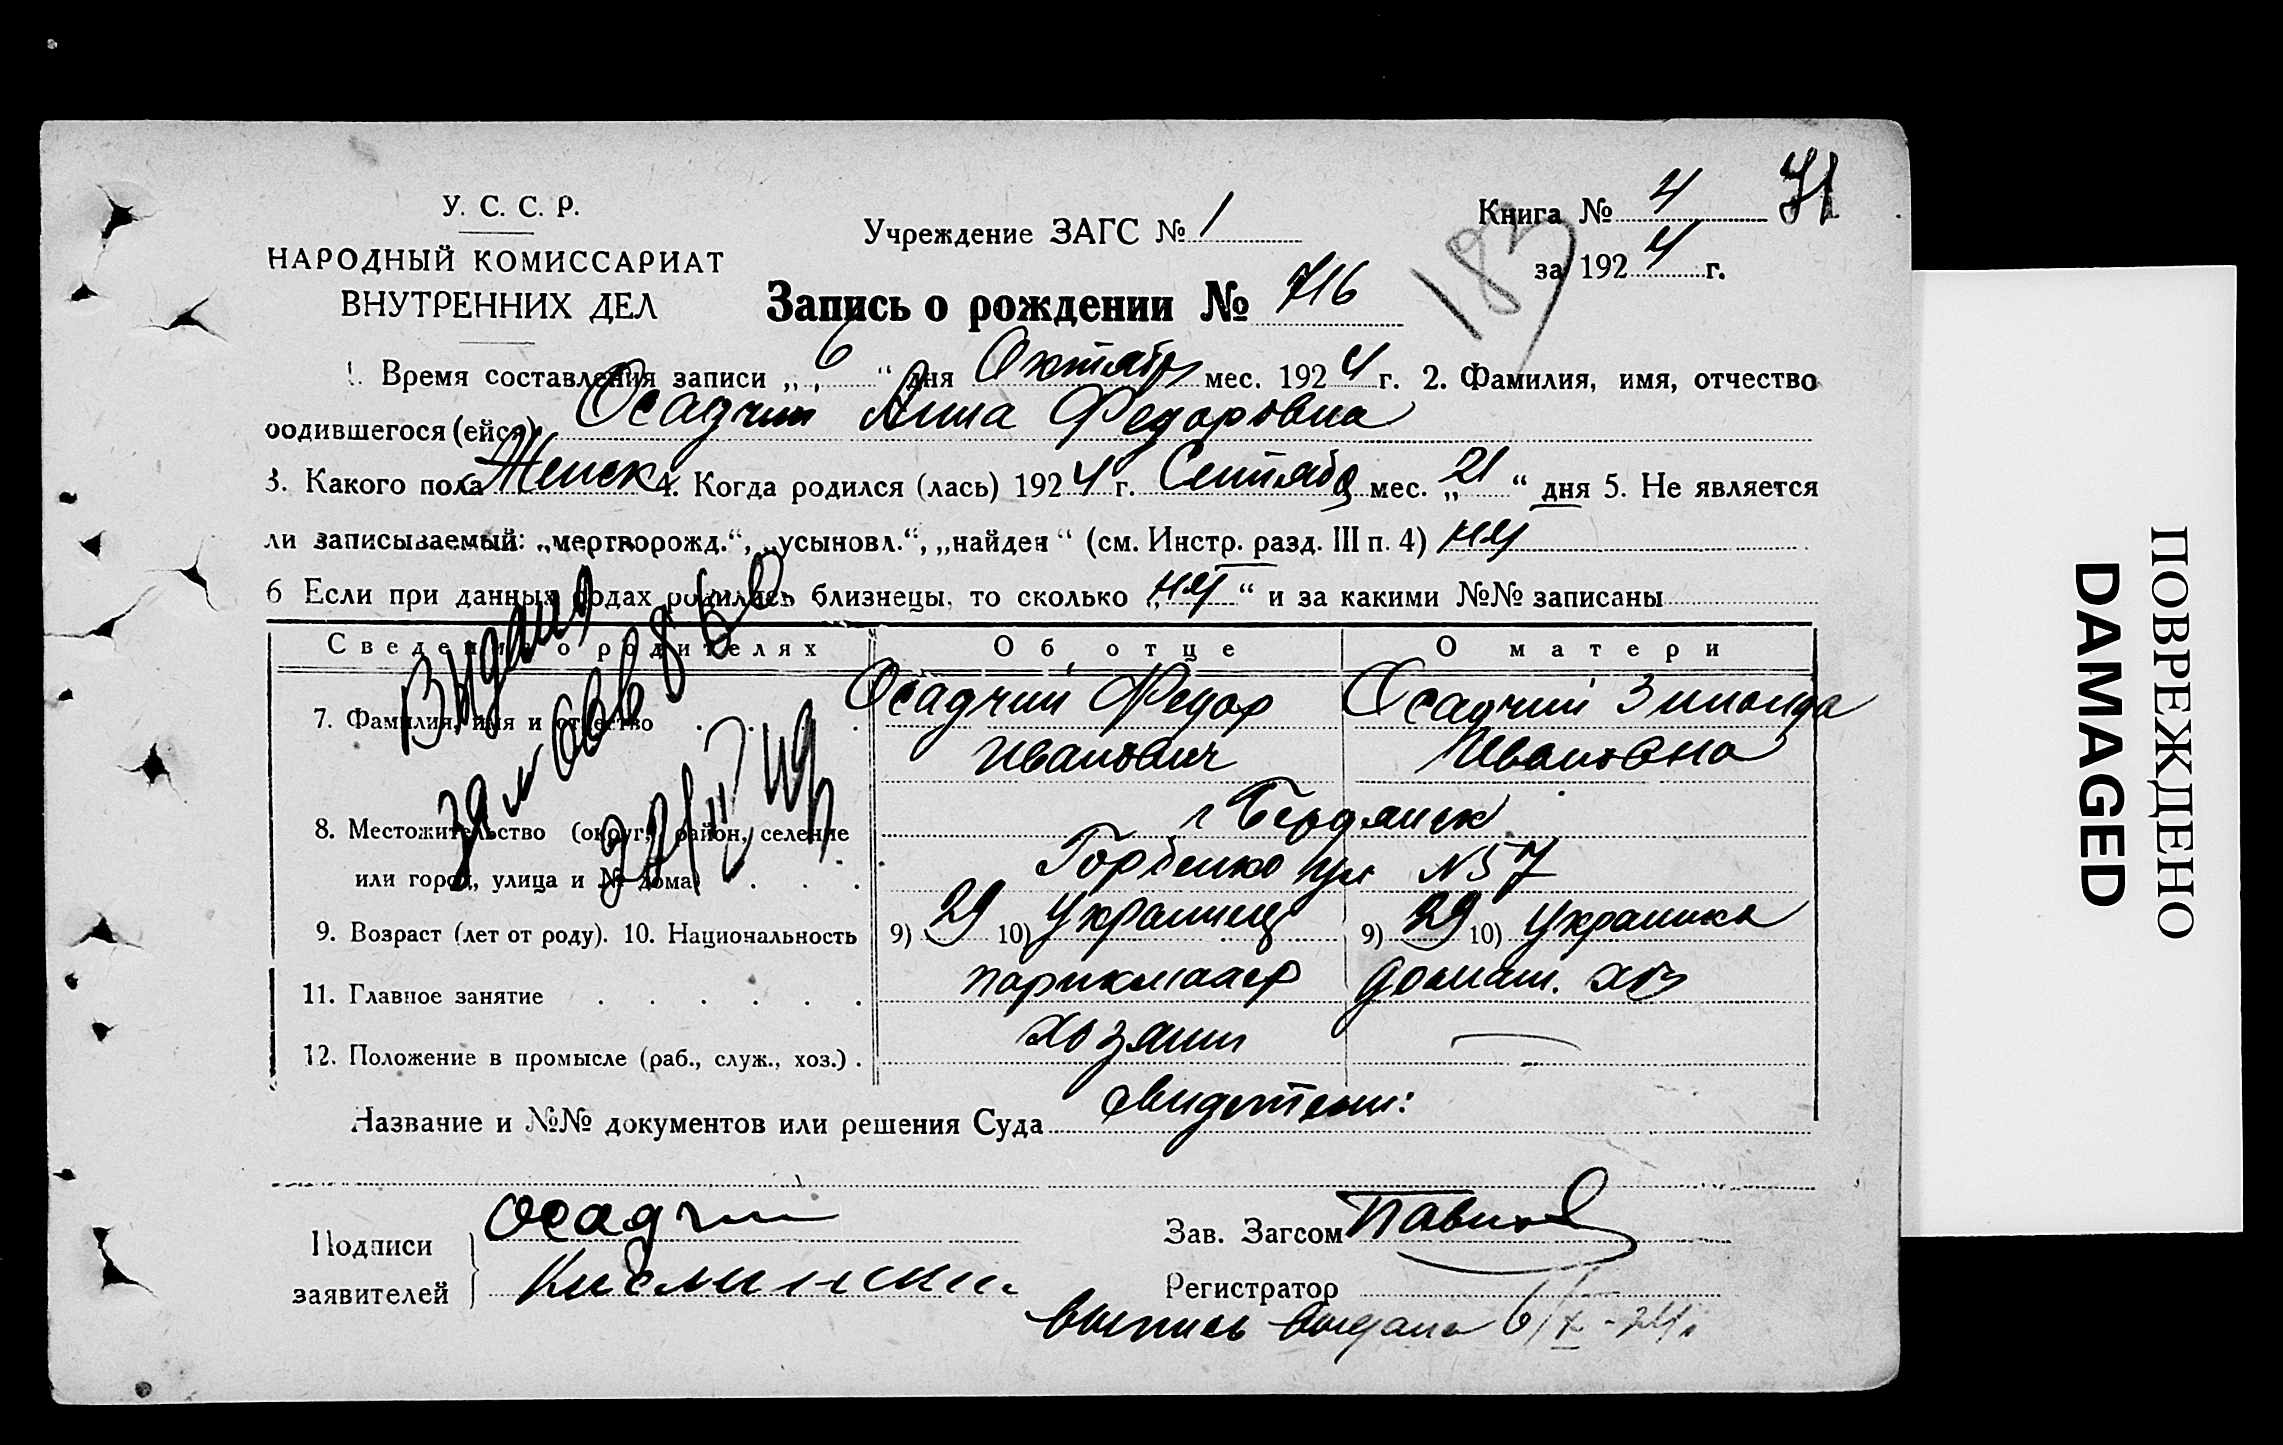 У. С. С. Р.
НАРОДНЫЙ КОМИССАРИАТ
ВНУТРЕННИХ ДЕЛ
Учреждение ЗАГС № 1
Книга № 4 71
за 1924 г.
183
Запись о рождении № 716
1. Время составления записи „ 6 “ дня Октябр мес. 1924 г. 2. Фамилия, имя, отчество
родившегося (ейся) Осадчий Анна Федоровна
3. Какого пола Женск 4. Когда родился (лась) 1924 г. Сентябр мес. „ 21 “ дня 5. Не является
ли записываемый: „мертворожд.“, „усыновл.“, „найден“ (см. Инстр. разд. III п. 4) нет
6 Если при данных родах родились близнецы, то сколько „ нет “ и за какими №№ записаны
Сведения о родителях Об отце О матери
7. Фамилия, имя и отчество Осадчий Федор Осадчий Зинаида
Иванович Ивановна
8. Местожительство (округ, район, селение г Бердянск
или город, улица и № дома) Горбенко ул N57
9. Возраст (лет от роду). 10. Национальность 9) 29 10) Украинец 9) 29 10) Украинка
11. Главное занятие парикмахер домаш. хоз
12. Положение в промысле (раб., служ., хоз.) хозяин —
Название и №№ документов или решения Суда свидетели:
Подписи
заявителей
Осадчий
Зав. Загсом
Регистратор
выпись выдана 6/X - 24 г.
ПОВРЕЖДЕНО
DAMAGED